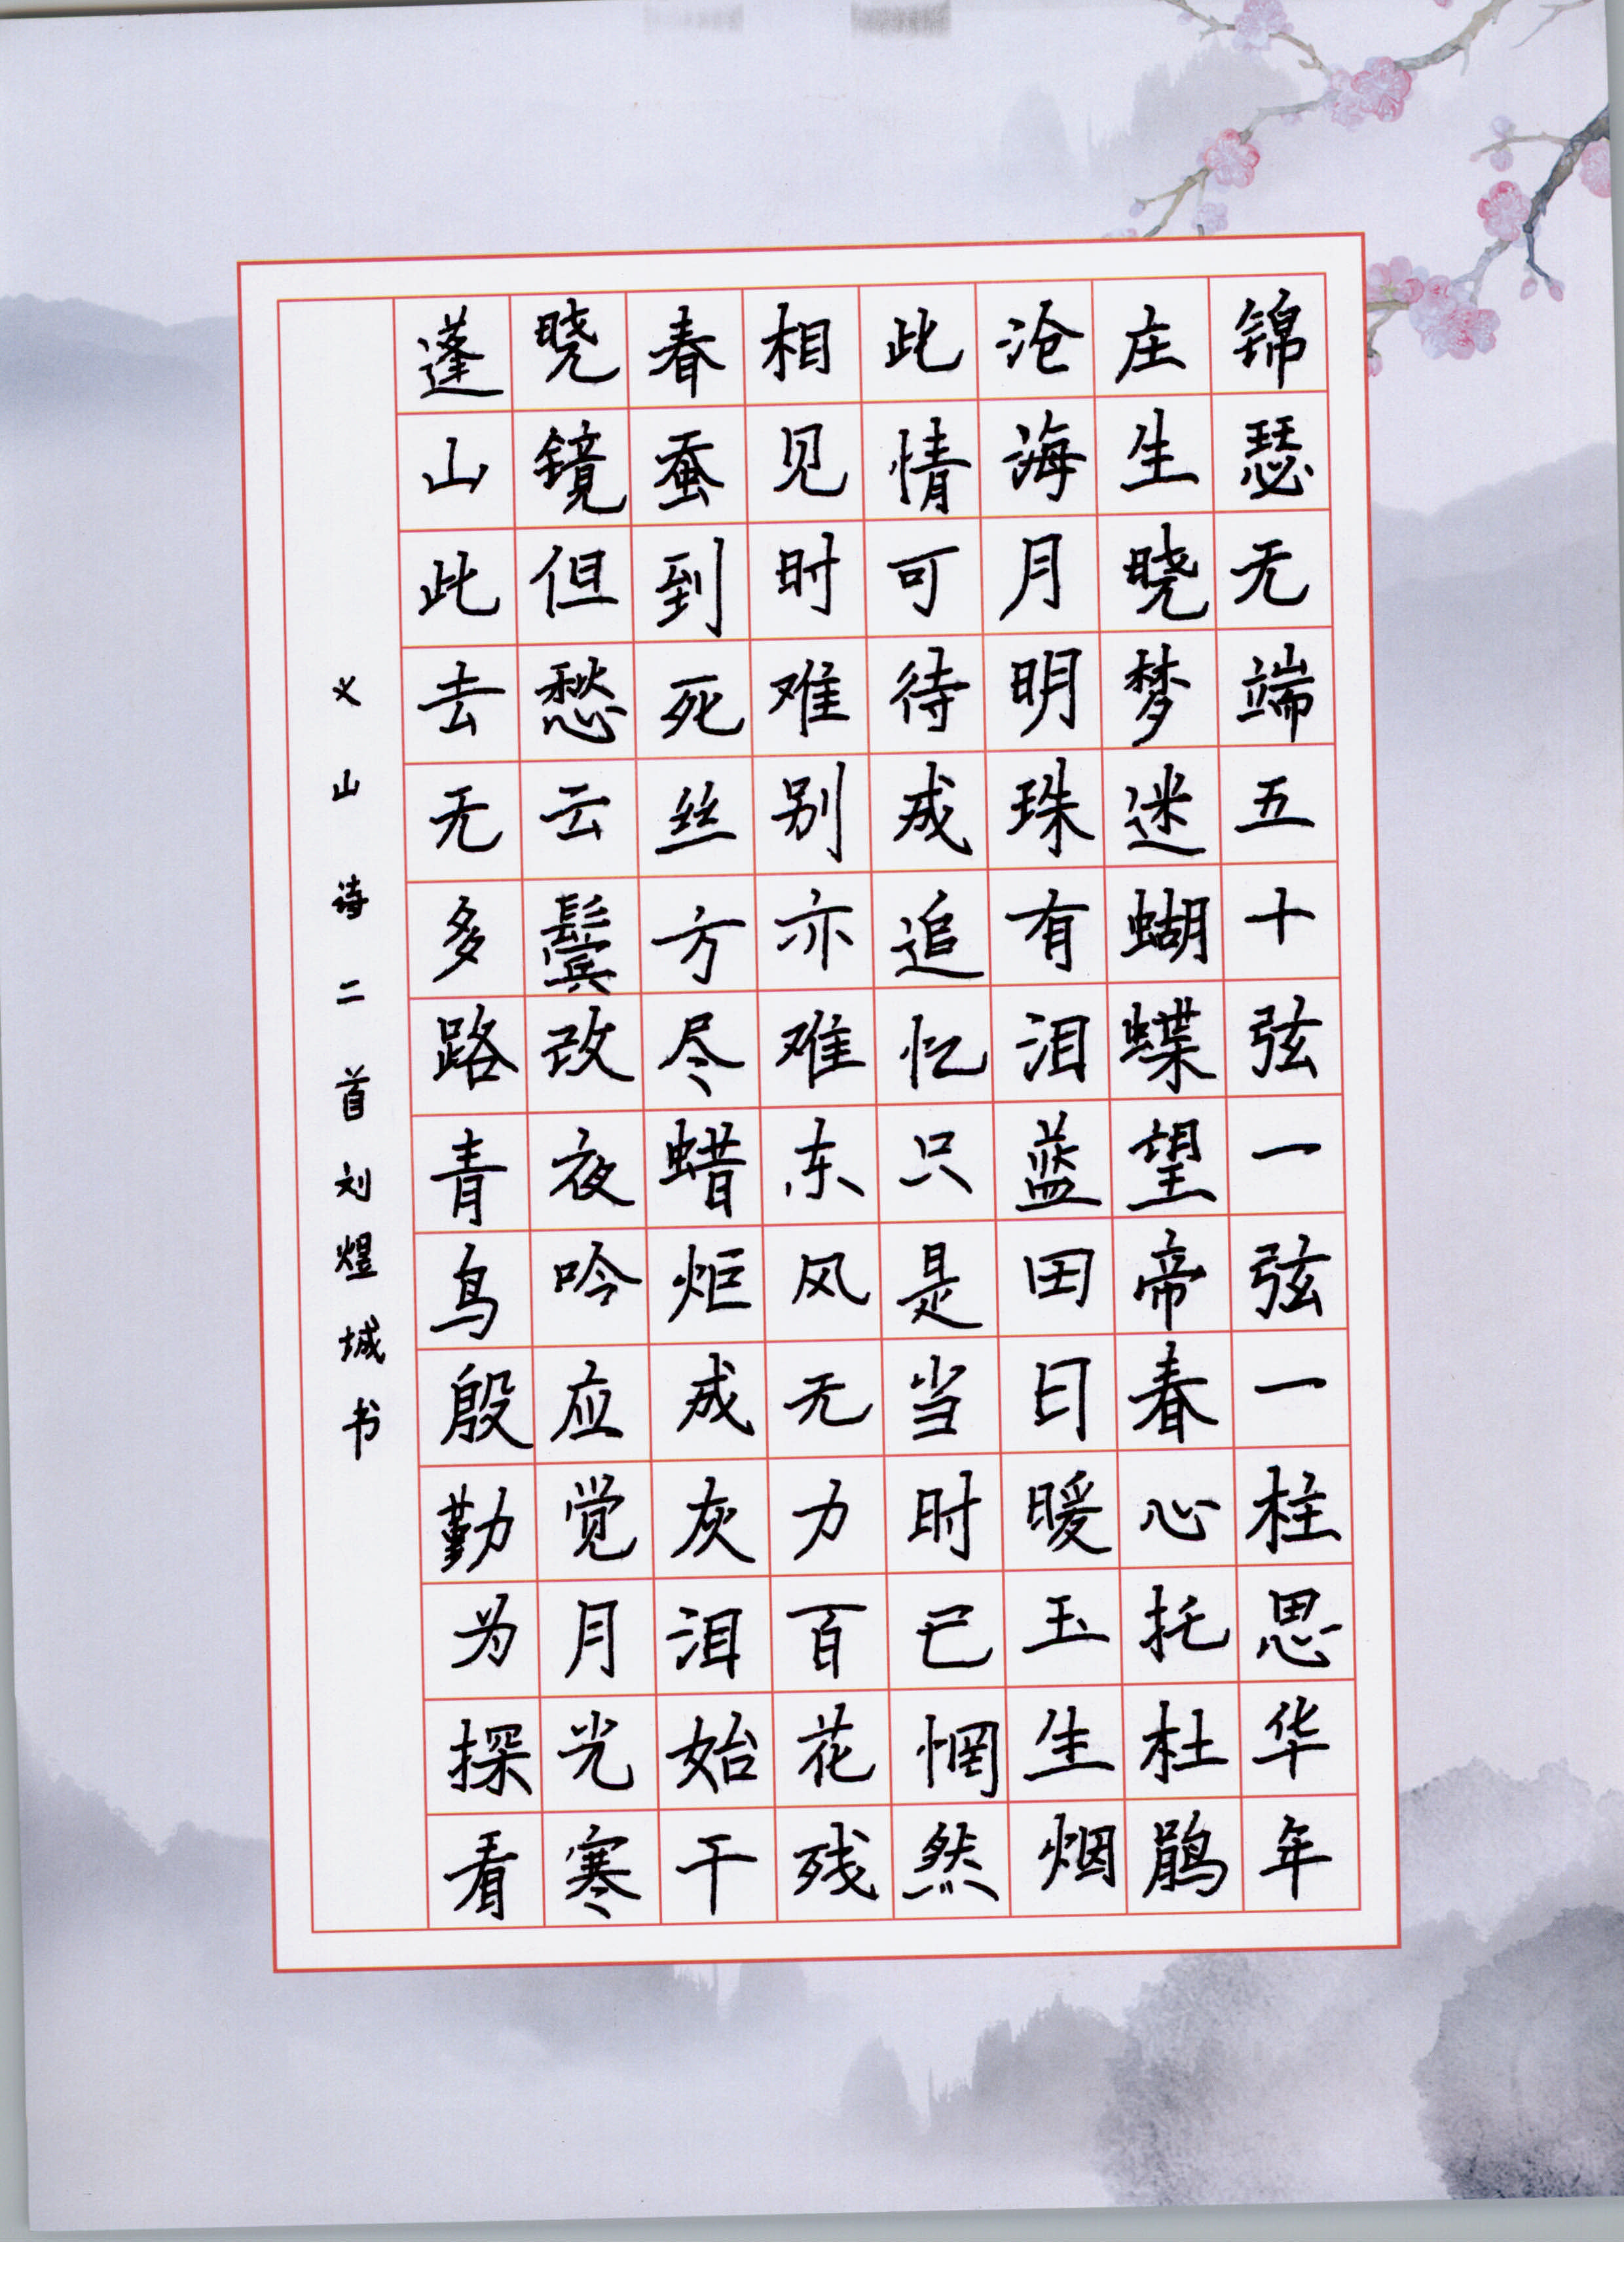 锦瑟无端五十弦一弦一柱思华年
庄生晓梦迷蝴蝶望帝春心托杜鹃
沧海月明珠有泪蓝田日暖玉生烟
此情可待成追忆只是当时已惘然
相见时难别亦难东风无力百花残
春蚕到死丝方尽蜡炬成灰泪始干
晓镜但愁云鬓改夜吟应觉月光寒
蓬山此去无多路青鸟殷勤为探看
义山诗二首刘煜城书